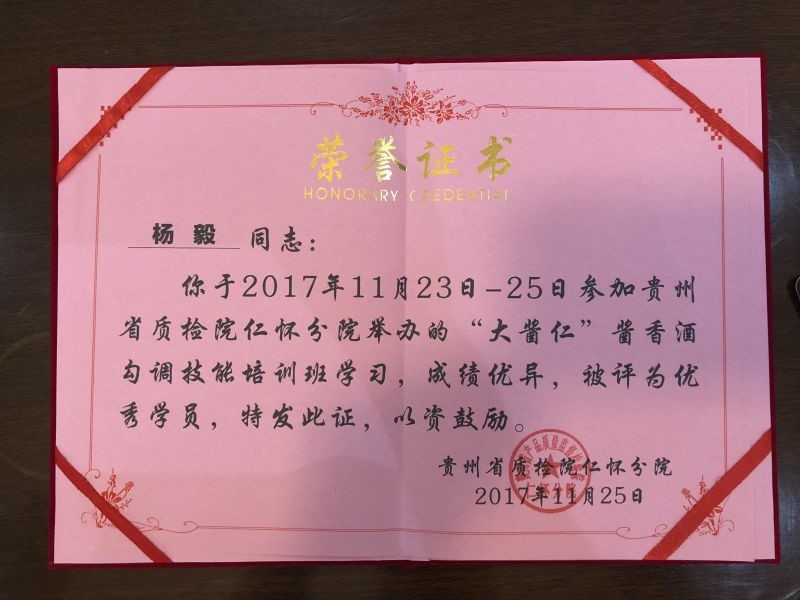 荣誉证书
HONORARY CREDENTIAL
杨毅 同志：
你于2017年11月23日-25日参加贵州
省质检院仁怀分院举办的“大酱仁”酱香酒
勾调技能培训班学习，成绩优异，被评为优
秀学员，特发此证，以资鼓励。
贵州省质检院仁怀分院
2017年11月25日